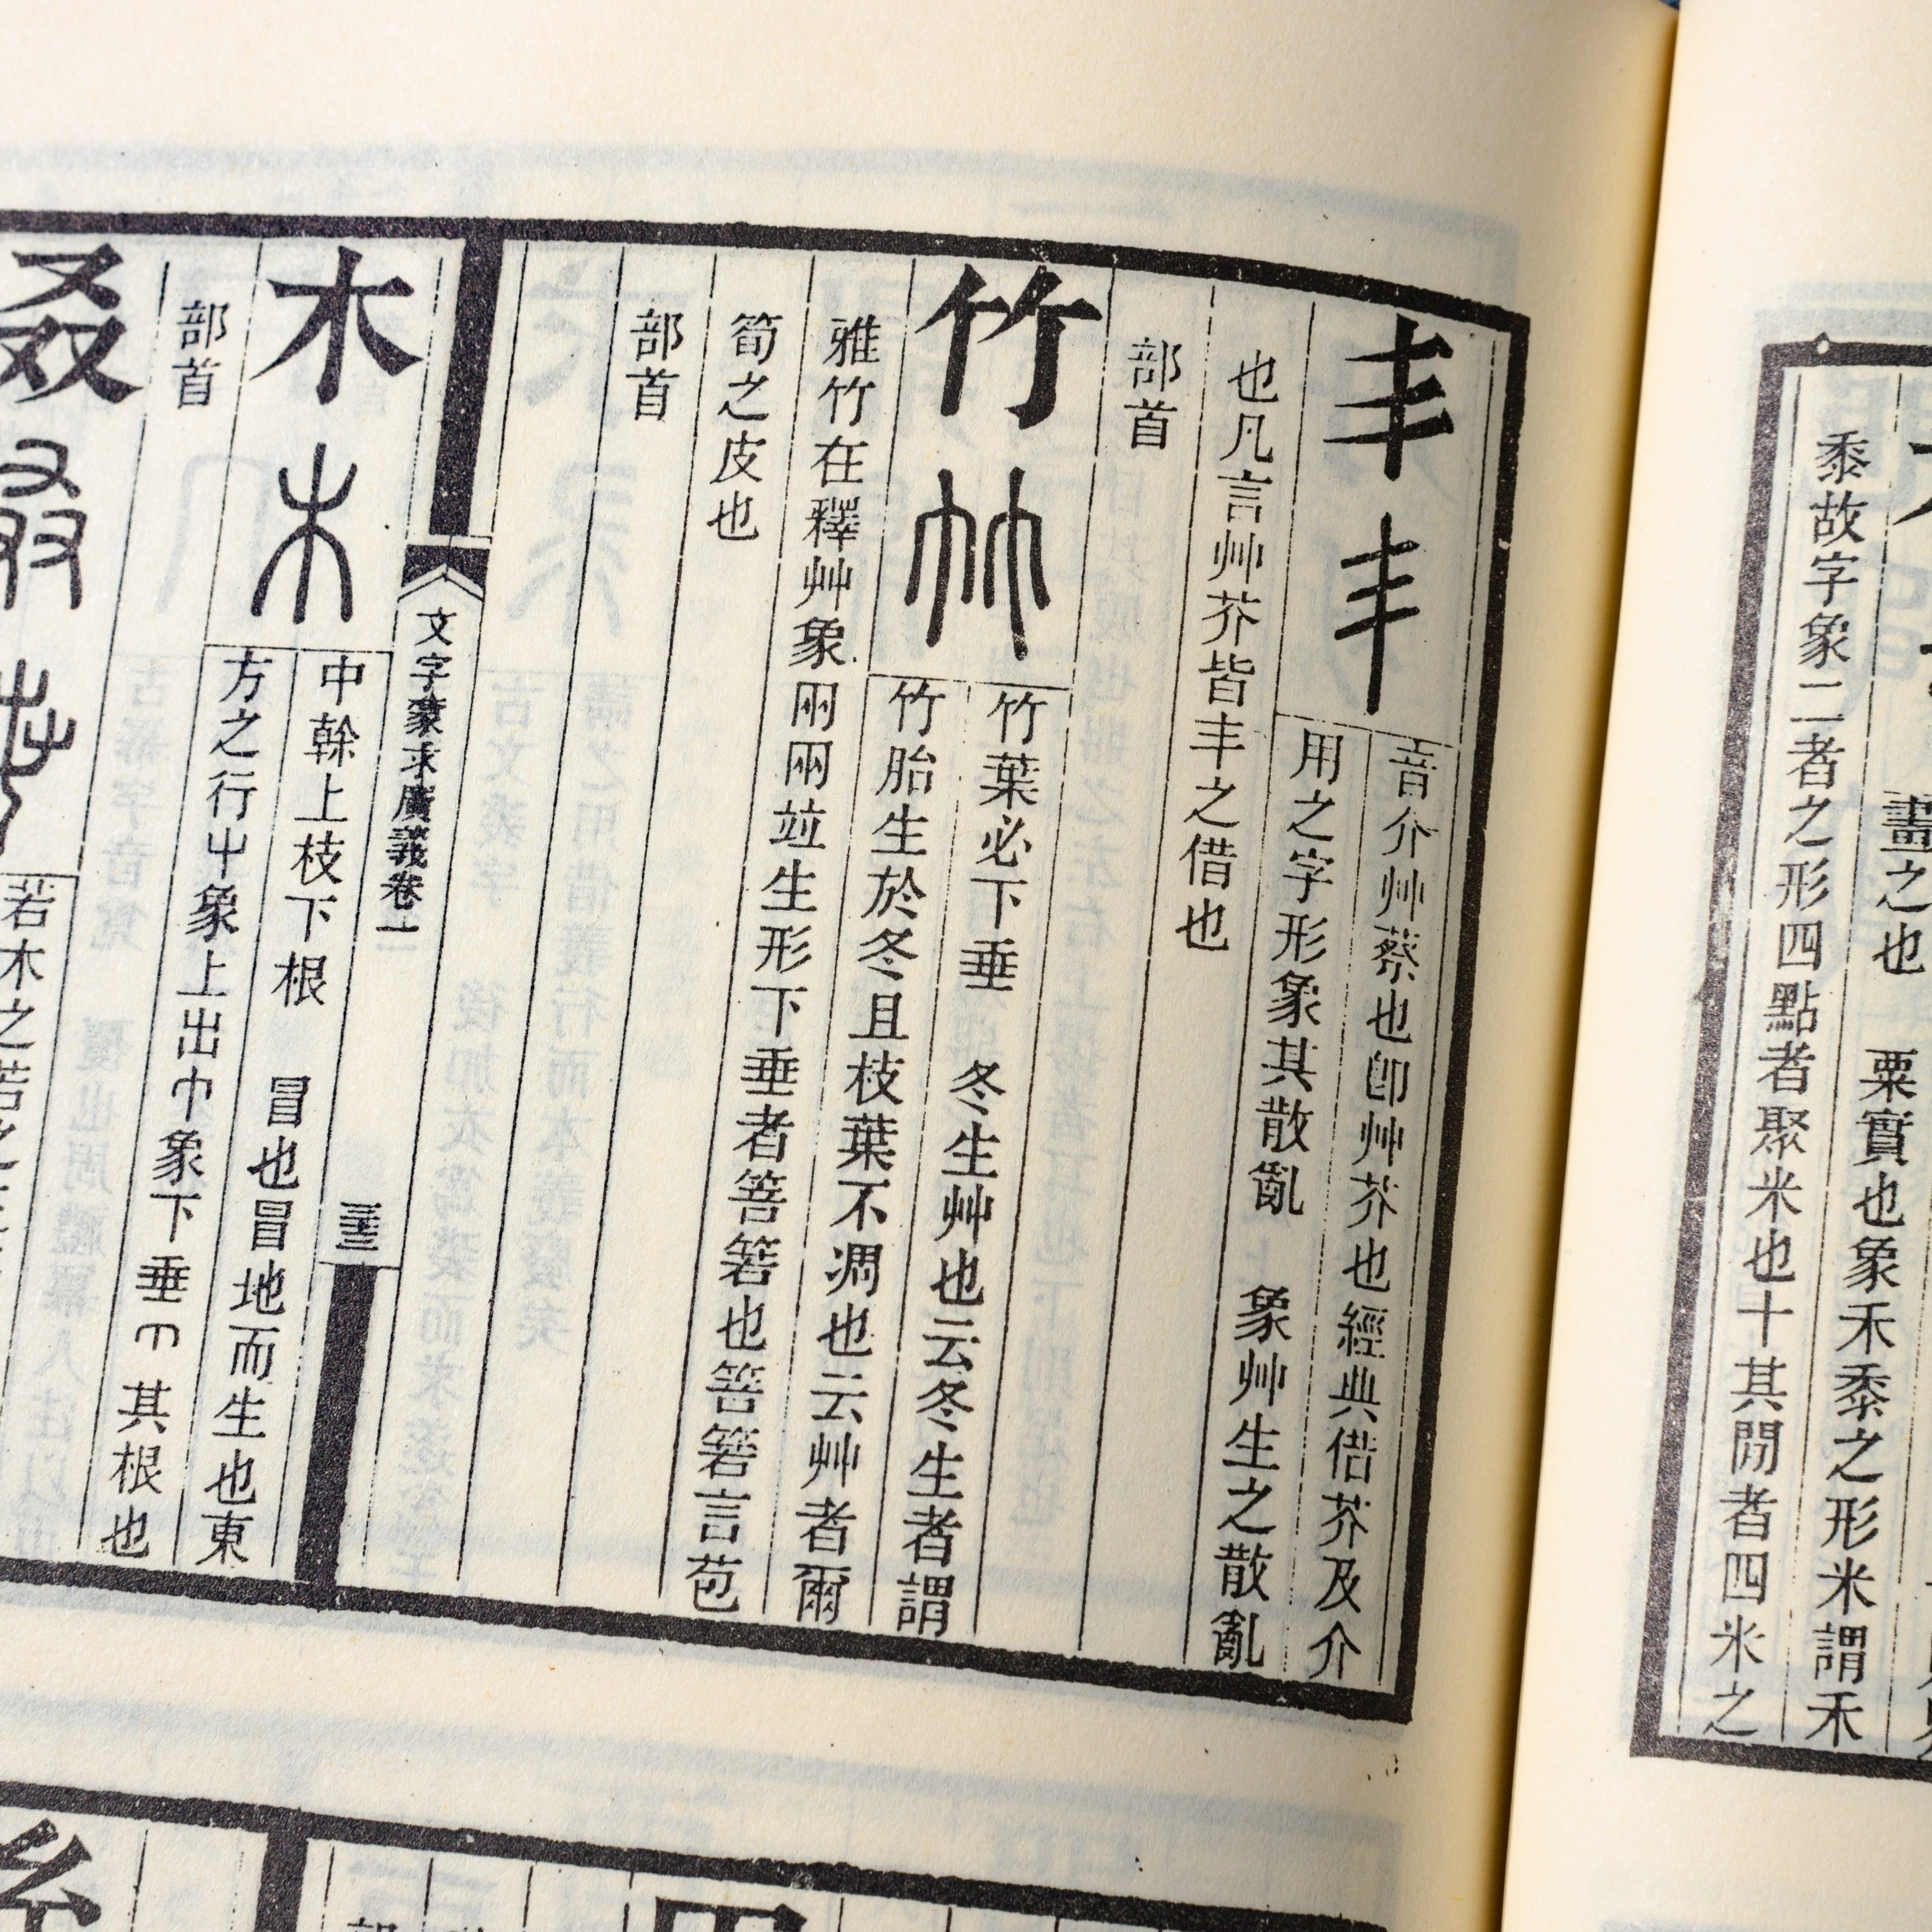 畫之也　粟實也象禾黍之形米謂禾
黍故字象二者之形四點者聚米也十其閒者四米之
丯 丯
音介艸蔡也卽艸芥也經典借芥及介
用之字形象其散亂　象艸生之散亂
也凡言艸芥皆丯之借也
部首
竹 竹
竹葉必下垂　冬生艸也云冬生者謂
竹胎生於冬且枝葉不凋也云艸者爾
雅竹在釋艸象兩兩竝生形下垂者箁箬也箁箬言苞
筍之皮也
部首
文字蒙求廣義卷一
三十三
木 木
中榦上枝下根　冒也冒地而生也東
方之行屮象上出巾象下垂其根也
部首
叒 叒
若木之若